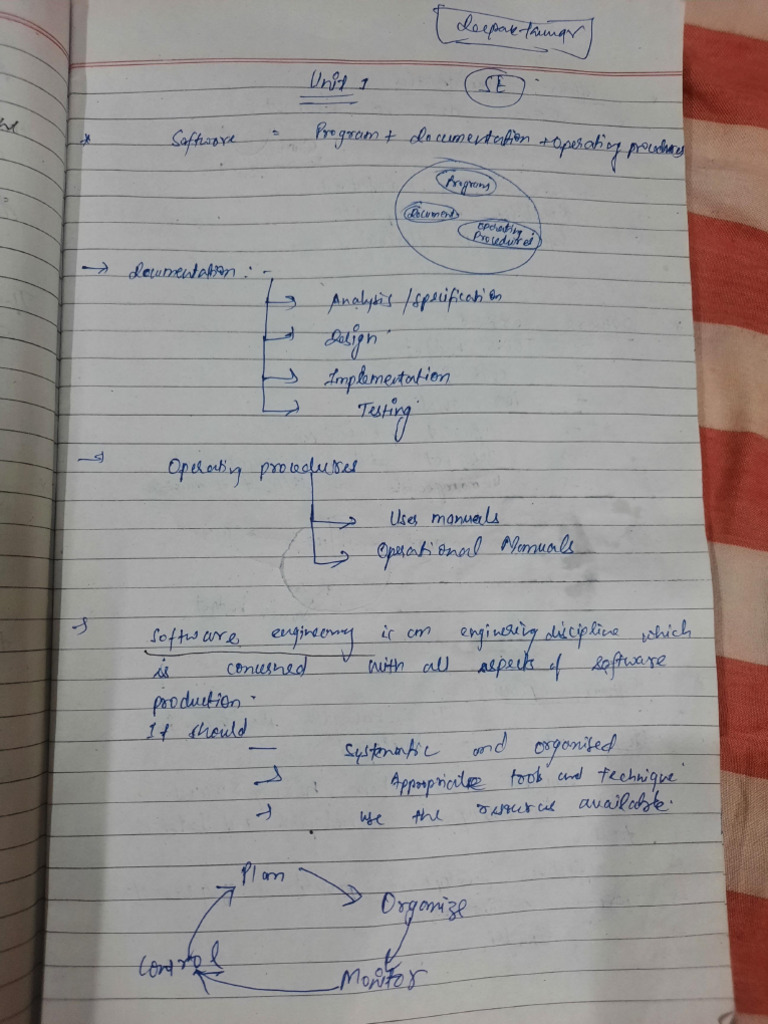 deepak kumar
Unit 1 SE
* Software = Program + documentation + operating procedures
Programs
Document
operating
Procedures
→ documentation :-
→ Analysis / specification
→ Design
→ Implementation
→ Testing
→ Operating procedures
→ User manuals
→ Operational Manuals
→ Software engineering is an engineering discipline which
is concerned with all aspects of software
production.
It should
— Systematic and organised
→ Appropriate tools and technique
→ use the resources available.
Plan
Organize
Control
Monitor